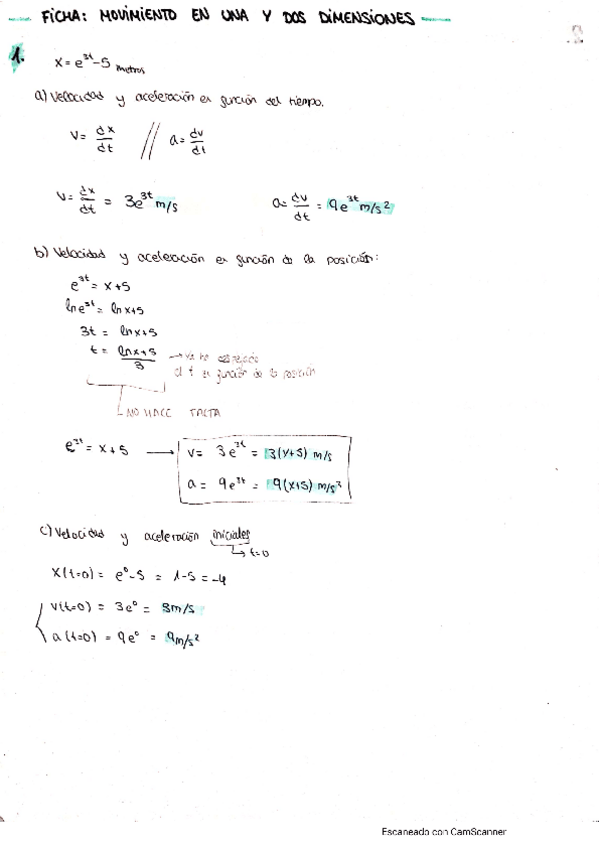 FICHA: MOVIMIENTO EN UNA Y DOS DIMENSIONES
1. x = e^3t - 5 metros
a) Velocidad y aceleración en función del tiempo.
v = dx/dt // a = dv/dt
v = dx/dt = 3e^3t m/s a = dv/dt = 9e^3t m/s²
b) Velocidad y aceleración en función de la posición:
e^3t = x+5
ln e^3t = ln x+5
3t = ln x+5
t = ln x+5 / 3 → ya he despejado
el t en función de la posición
NO HACE FALTA
e^3t = x+5 → v = 3e^3t = 3(x+5) m/s
a = 9e^3t = 9(x+5) m/s²
c) Velocidad y aceleración iniciales
↳ t=0
x(t=0) = e^0 - 5 = 1-5 = -4
v(t=0) = 3e^0 = 3m/s
a(t=0) = 9e^0 = 9m/s²
Escaneado con CamScanner